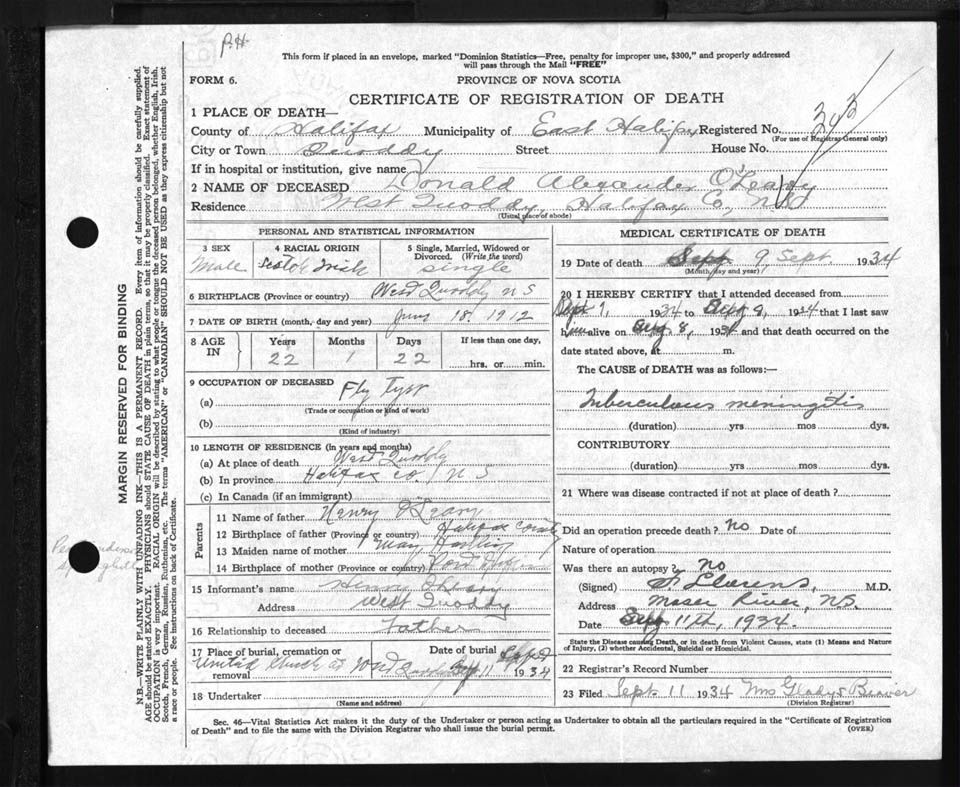 P.H.
This form if placed in an envelope, marked "Dominion Statistics—Free, penalty for improper use, $300," and properly addressed
will pass through the Mail "FREE"
FORM 6.
PROVINCE OF NOVA SCOTIA
CERTIFICATE OF REGISTRATION OF DEATH
1 PLACE OF DEATH—
County of Halifax Municipality of East Halifax Registered No. 343
(For use of Registrar General only)
City or Town Quoddy Street House No.
If in hospital or institution, give name
2 NAME OF DECEASED Donald Alexander O'Leary
Residence West Quoddy, Halifax Co, N.S
(Usual place of abode)
PERSONAL AND STATISTICAL INFORMATION
3 SEX
Male
4 RACIAL ORIGIN
Scotch Irish
5 Single, Married, Widowed or
Divorced. (Write the word)
Single
6 BIRTHPLACE (Province or country) West Quoddy N S
7 DATE OF BIRTH (month, day and year) June 18. 1912
8 AGE IN
Years Months Days If less than one day,
22 1 22 hrs. or min.
9 OCCUPATION OF DECEASED
(a) Fly Tyer
(Trade or occupation or kind of work)
(b)
(Kind of industry)
10 LENGTH OF RESIDENCE (in years and months)
(a) At place of death West Quoddy
(b) In province Halifax co. N S
(c) In Canada (if an immigrant)
Parents
11 Name of father Henry O'Leary
12 Birthplace of father (Province or country) Halifax County
13 Maiden name of mother May
14 Birthplace of mother (Province or country)
15 Informant's name Henry O'Leary
Address West Quoddy
16 Relationship to deceased Father
17 Place of burial, cremation or
removal
Date of burial Sept
United Church at West Quoddy 11 1934
18 Undertaker
(Name and address)
MEDICAL CERTIFICATE OF DEATH
19 Date of death Sept 9, Sept. 1934
(Month, day and year)
20 I HEREBY CERTIFY that I attended deceased from
Sept 1, 1934 to Sept 9, 1934 that I last saw
him alive on Aug 8, 1934 and that death occurred on the
date stated above, at m.
The CAUSE of DEATH was as follows:—
Tuberculous meningitis
(duration) yrs mos dys.
CONTRIBUTORY
(duration) yrs mos dys.
21 Where was disease contracted if not at place of death?
Did an operation precede death? No Date of
Nature of operation
Was there an autopsy? No
(Signed) M.D.
Address Moser River, N.S.
Date Sept 11th, 1934.
State the Disease causing Death, or in death from Violent Causes, state (1) Means and Nature
of Injury, (2) whether Accidental, Suicidal or Homicidal.
22 Registrar's Record Number
23 Filed Sept. 11 1934 Mrs Gladys Beaver
(Division Registrar)
Sec. 46—Vital Statistics Act makes it the duty of the Undertaker or person acting as Undertaker to obtain all the particulars required in the "Certificate of Registration
of Death" and to file the same with the Division Registrar who shall issue the burial permit.
(OVER)
MARGIN RESERVED FOR BINDING
N.B.—WRITE PLAINLY WITH UNFADING INK—THIS IS A PERMANENT RECORD. Every item of information should be carefully supplied.
AGE should be stated EXACTLY. PHYSICIANS should STATE CAUSE OF DEATH in plain terms, so that it may be properly classified. Exact statement of
OCCUPATION is very important. RACIAL ORIGIN will be described by stating to what people or tongue the deceased person belonged, whether English, Irish,
Scotch, French, German, Russian, Ruthenian, etc. The terms "AMERICAN" or "CANADIAN" SHOULD NOT BE USED as they express citizenship but not
a race or people. See instructions on back of Certificate.